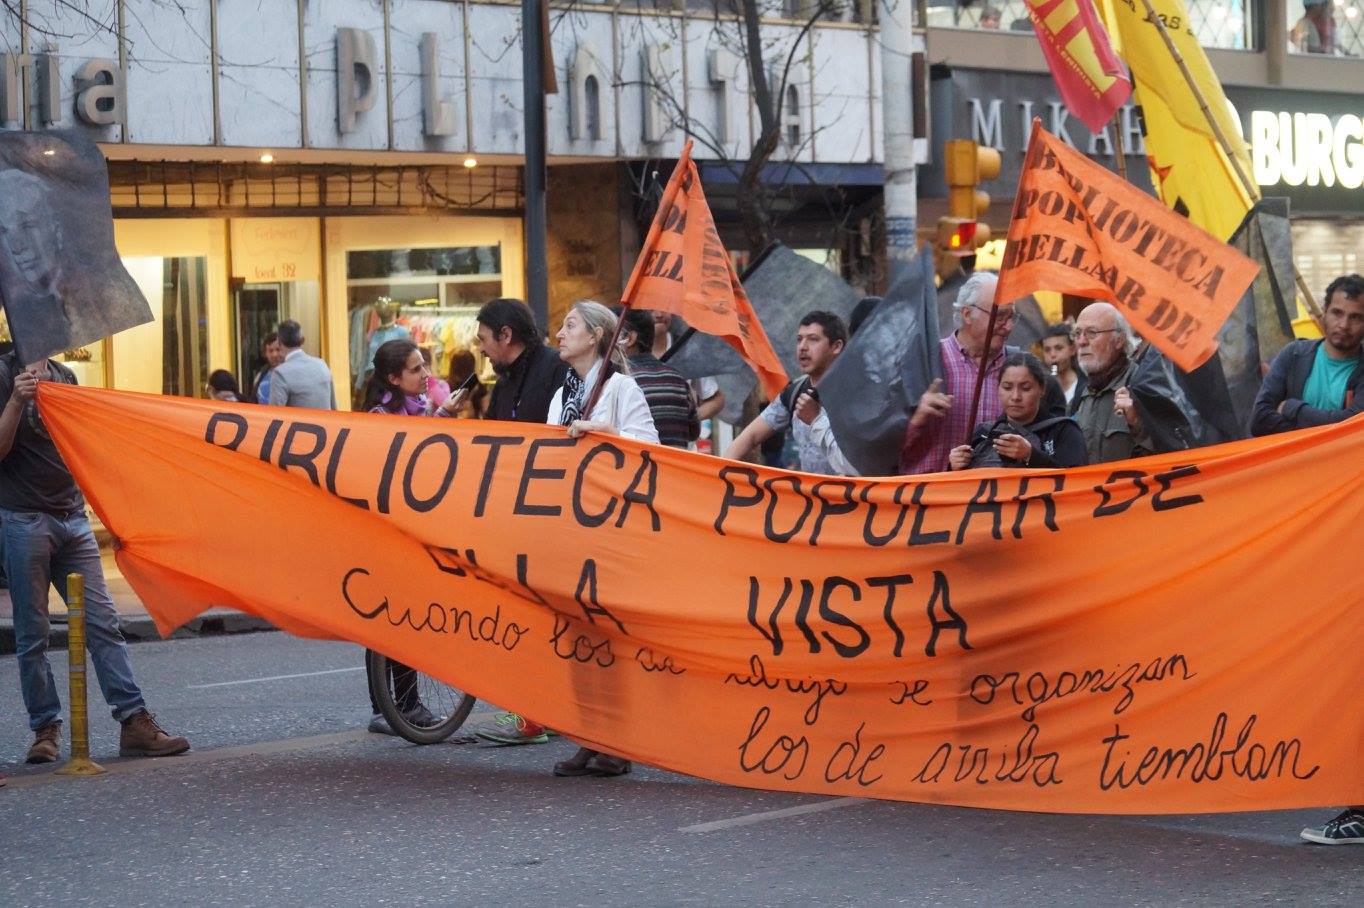 ria PLAnETA
MIKAH
BURG
Federica
local 32
BIBLIOTECA
POPULAR DE
BELLA
BIBLIOTECA POPULAR DE
BELLA VISTA
Cuando los de abajo se organizan
los de arriba tiemblan